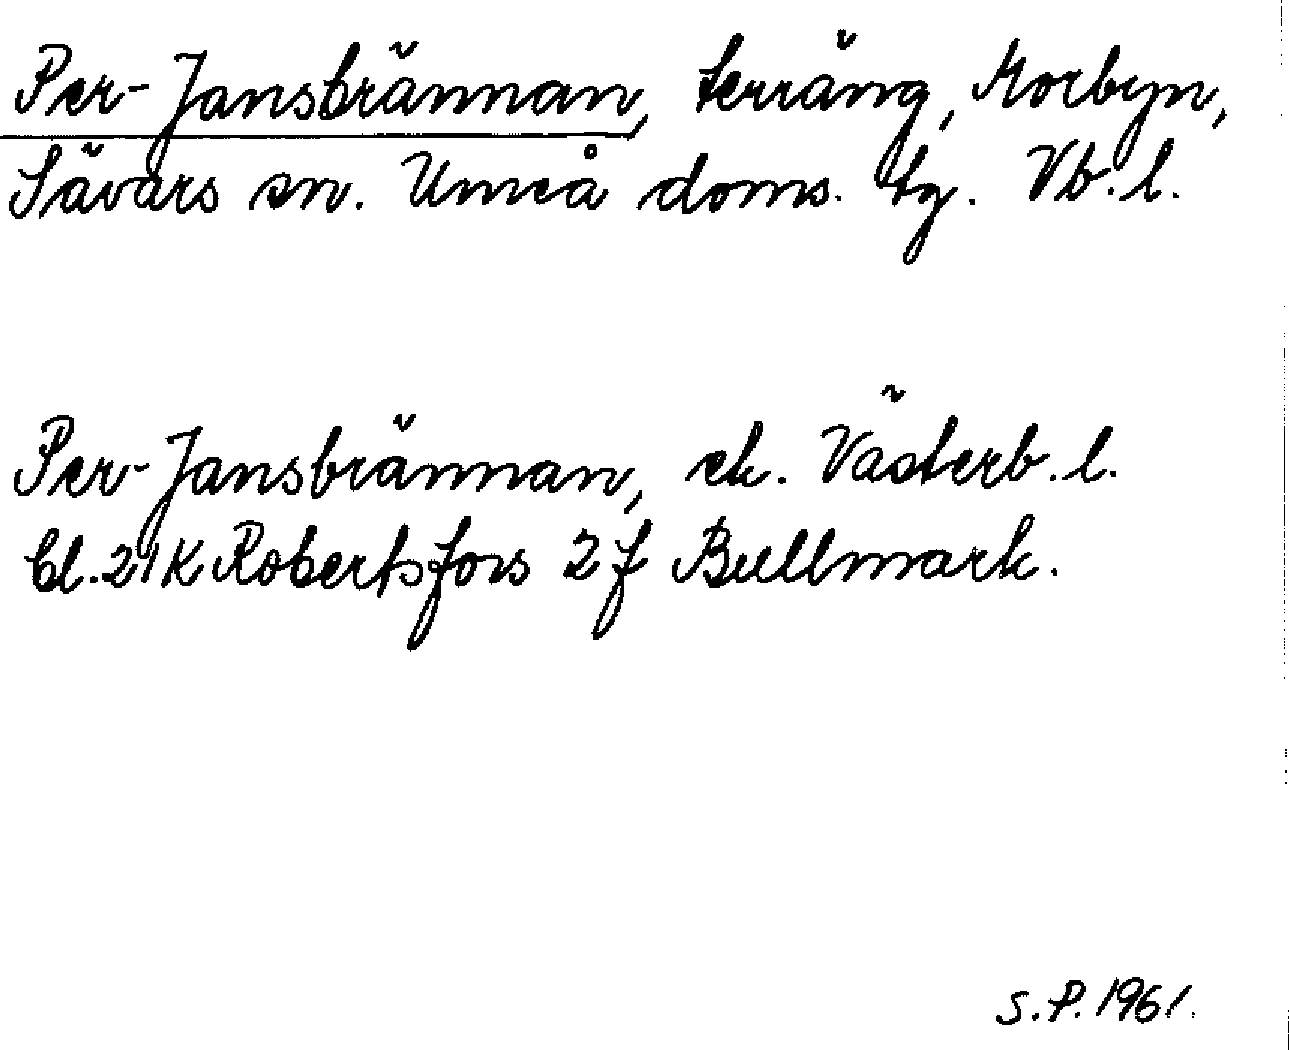 Per-Jansbrännan, terräng, Norbyn,
Sävars sn. Umeå doms. tg. Vb.l.
Per-Jansbrännan, ek. Västerb.l.
bl.21K Robertsfors 2f Bullmark.
S.P.1961.